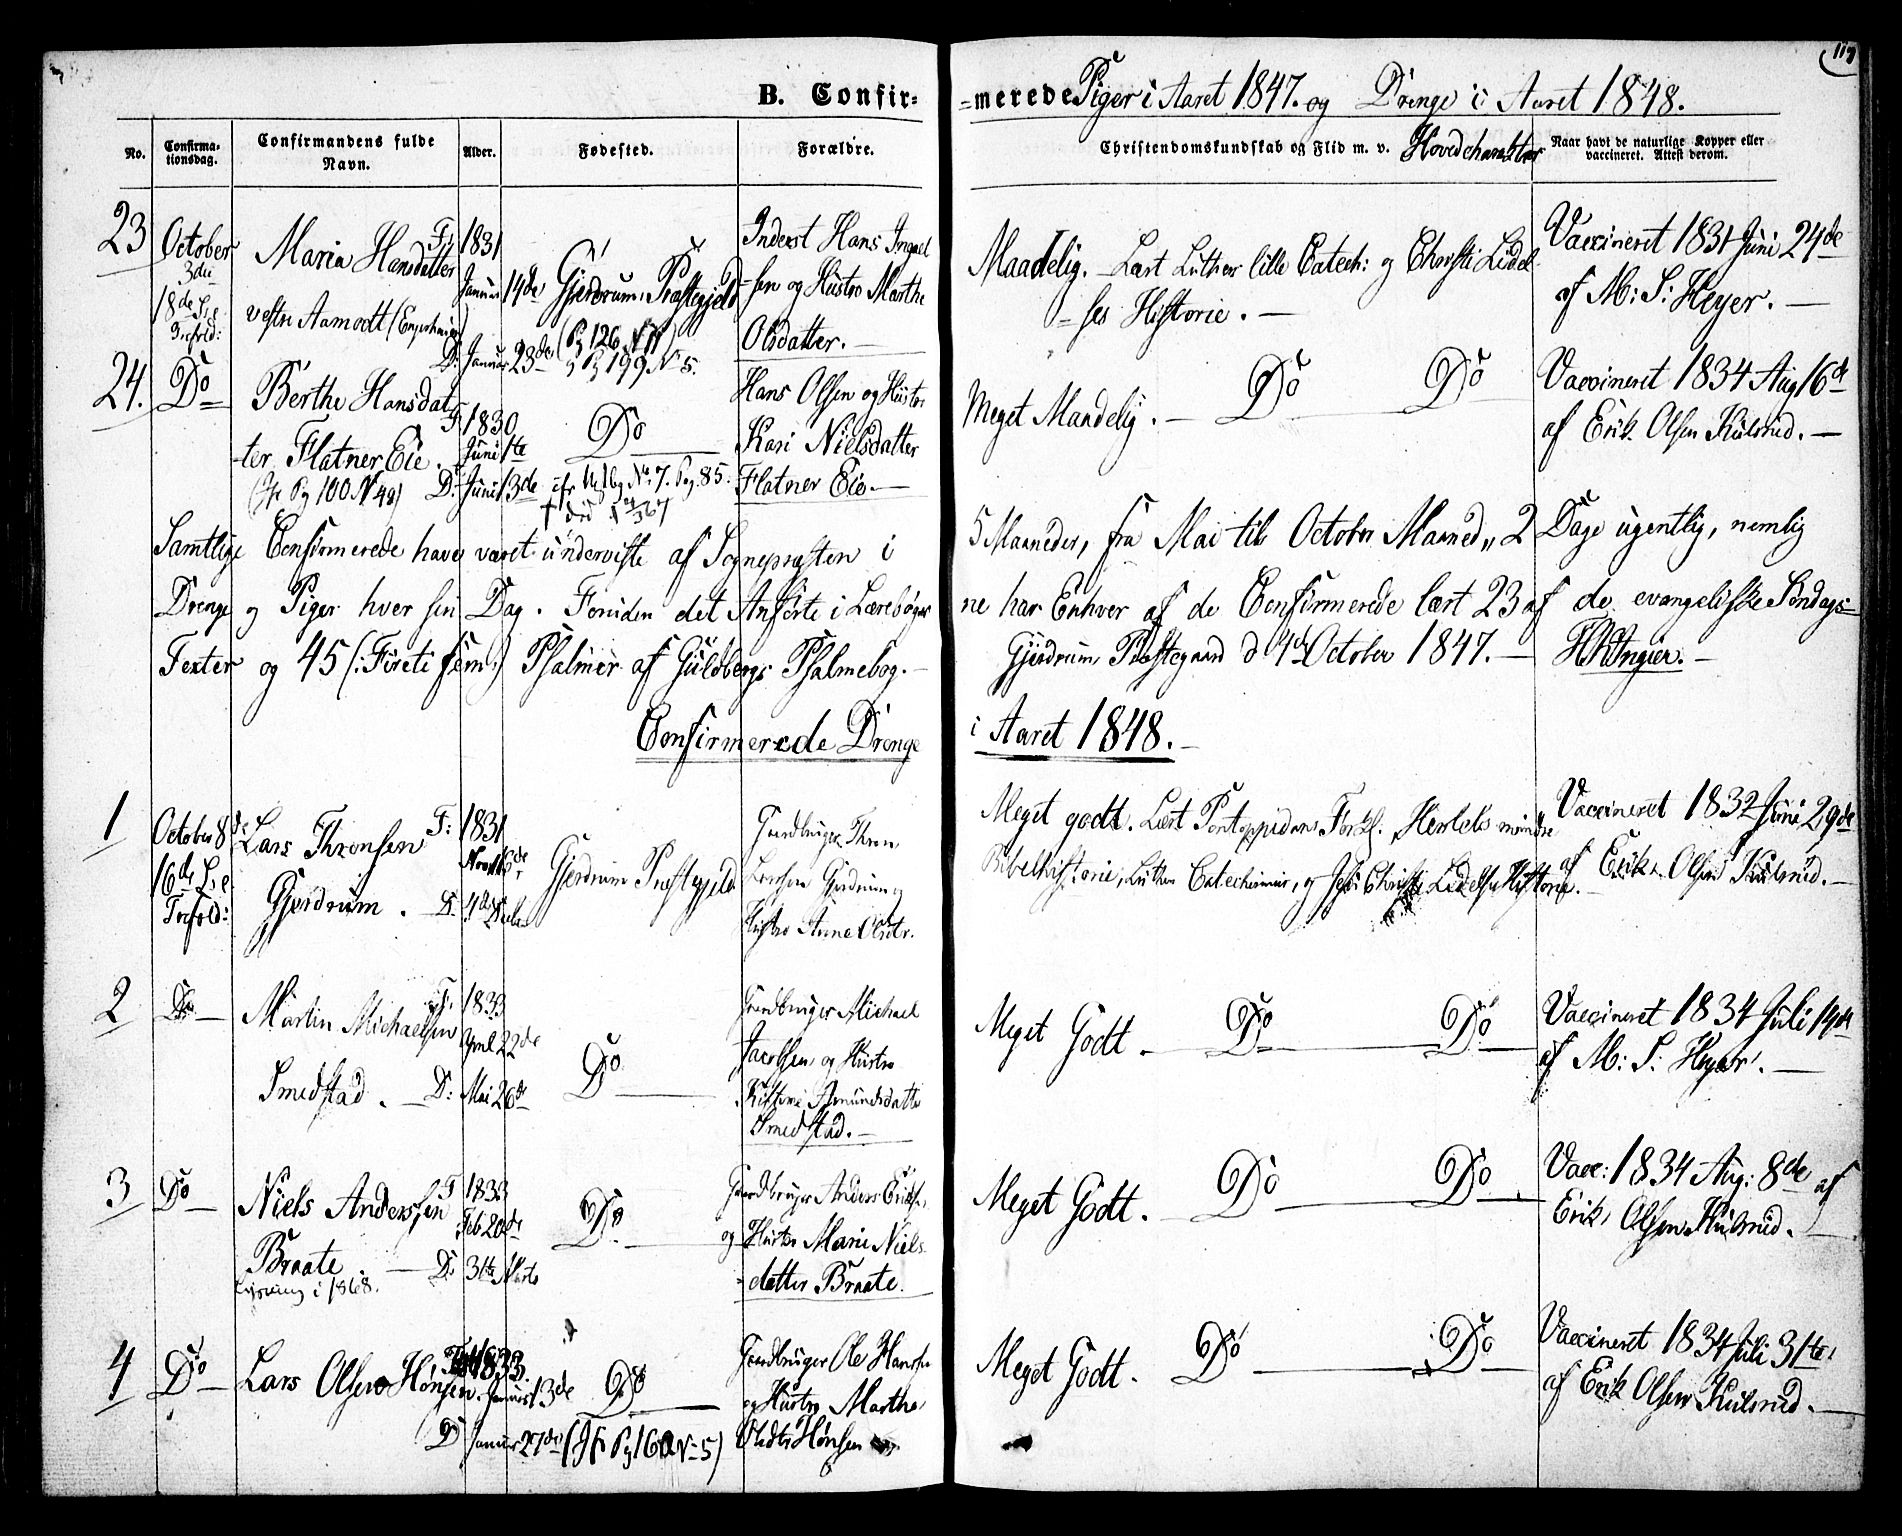 117
B. Confir= =merede Piger i Aaret 1847. og Drenge i Aaret 1848.
No. Confirmationsdag. Confirmandens fulde Navn. Alder. Fødested. Forældre. Christendomskundskab og Flid m. v. Hovedcharakter Naar havt de naturlige Kopper eller vaccineret. Attest derom.
23 October Maria Hansdatter F: 1831 Gjerdrum Præstegjeld Inderst Hans Ingvel Maadelig. Lært Luthers lille Catech: og Christi Lidel Vaccineret 1831 Juni 24de
3die Januar 14de =sen og Hustro Marthe =ses Historie. af M: S: Heyer.
18de S: e vestre Aamodt (Pg 126 N Olsdatter.
Trefold: D: Januar 23de og Pg 199 N 5.
24. Do Berthe Hansdat F 1830 Do Hans Olsen og Hustro Meget Maadelig. Do Do Vaccineret 1834 Aug 16de
-ter Flatner Eie. Juni 1te Kari Nielsdatter af Erik Olsen Kulsrud.
(Jfr Pg 100 N 48) D: Juni 13de cfr No 7. Pag. 85. Flatner Eie.
† død
Samtlige Confirmerede have været underviste af Sognepræsten i 5 Maaneder, fra Mai til October Maaned, 2 Dage ugentlig, nemlig
Drenge og Piger hver sin Dag. Foruden det Anførte i Lærebøger ne har Enhver af de Confirmerede lært 23 af de evangeliske Søndags=
Texter og 45 (: Fireti fem :) Psalmer af Guldbergs Psalmebog. Gjerdrum Præstegaard d 4de October 1847.
Confirmerede Drenge i Aaret 1848.
1 October 8de Lars Thronsen F: 1831 Gjerdrum Præstegjeld Gaardbruger Thron Meget godt. Lært Pontoppidans Forkl. Herslebs mindre Vaccineret 1832 Juni 29de
16de S: e Gjerdrum. Larsen Gjerdrum og Bibelhistorie, Luthers Catechismus, og Jesu Christi Lidelses Historie. af Erik Olsen Kulsrud.
Trefold: D. 4de Hustro Anne Olsdtr.
2 Do Martin Michaelsen F. 1833 Gaardbruger Michael Meget Godt. Do Do Vaccineret 1834 Juli 14de
April 22de Do Jacobsen og Hustro af M: S: Heyer.
Smedstad. D: Mai 26de Asmundsdatter
Smedstad.
3 Do Niels Andersen F 1833 Do Gaardbruger Anders Meget Godt. Do Do Vacc: 1834 Aug: 8de af
Feb 20de og Hustro Marie Niels Erik Olsen Kulsrud.
Braate D. 31te Marts =datter Braate.
Lysning i 1868.
4 Do Lars Olsen Hønsen 1833. Do Gaardbruger Ole Hansen Meget Godt. Do Do Vaccineret 1834 Juli 31te
Januar 13de og Hustro Marthe af Erik Olsen Kulsrud.
D Januar 27de (Jfr Pg 160 N 5) Olsdtr Hønsen